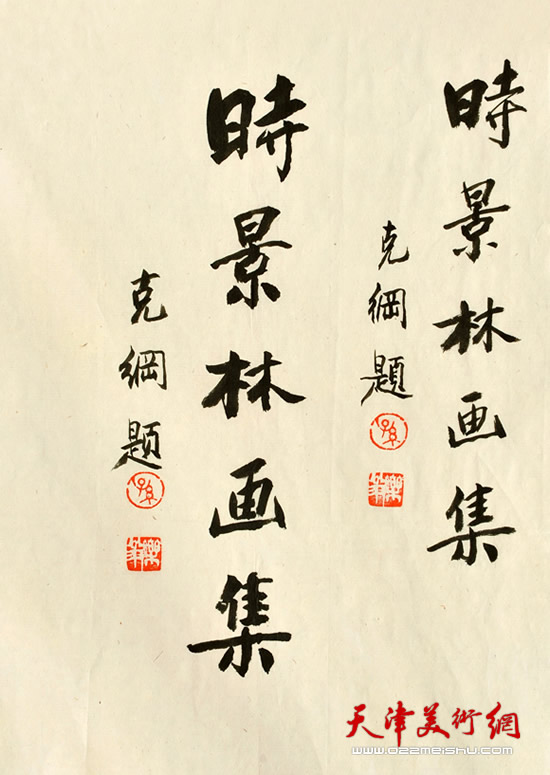 時景林画集
克綱題
孫
時景林画集
克綱題
孫
天津美術網
www.022meishu.com